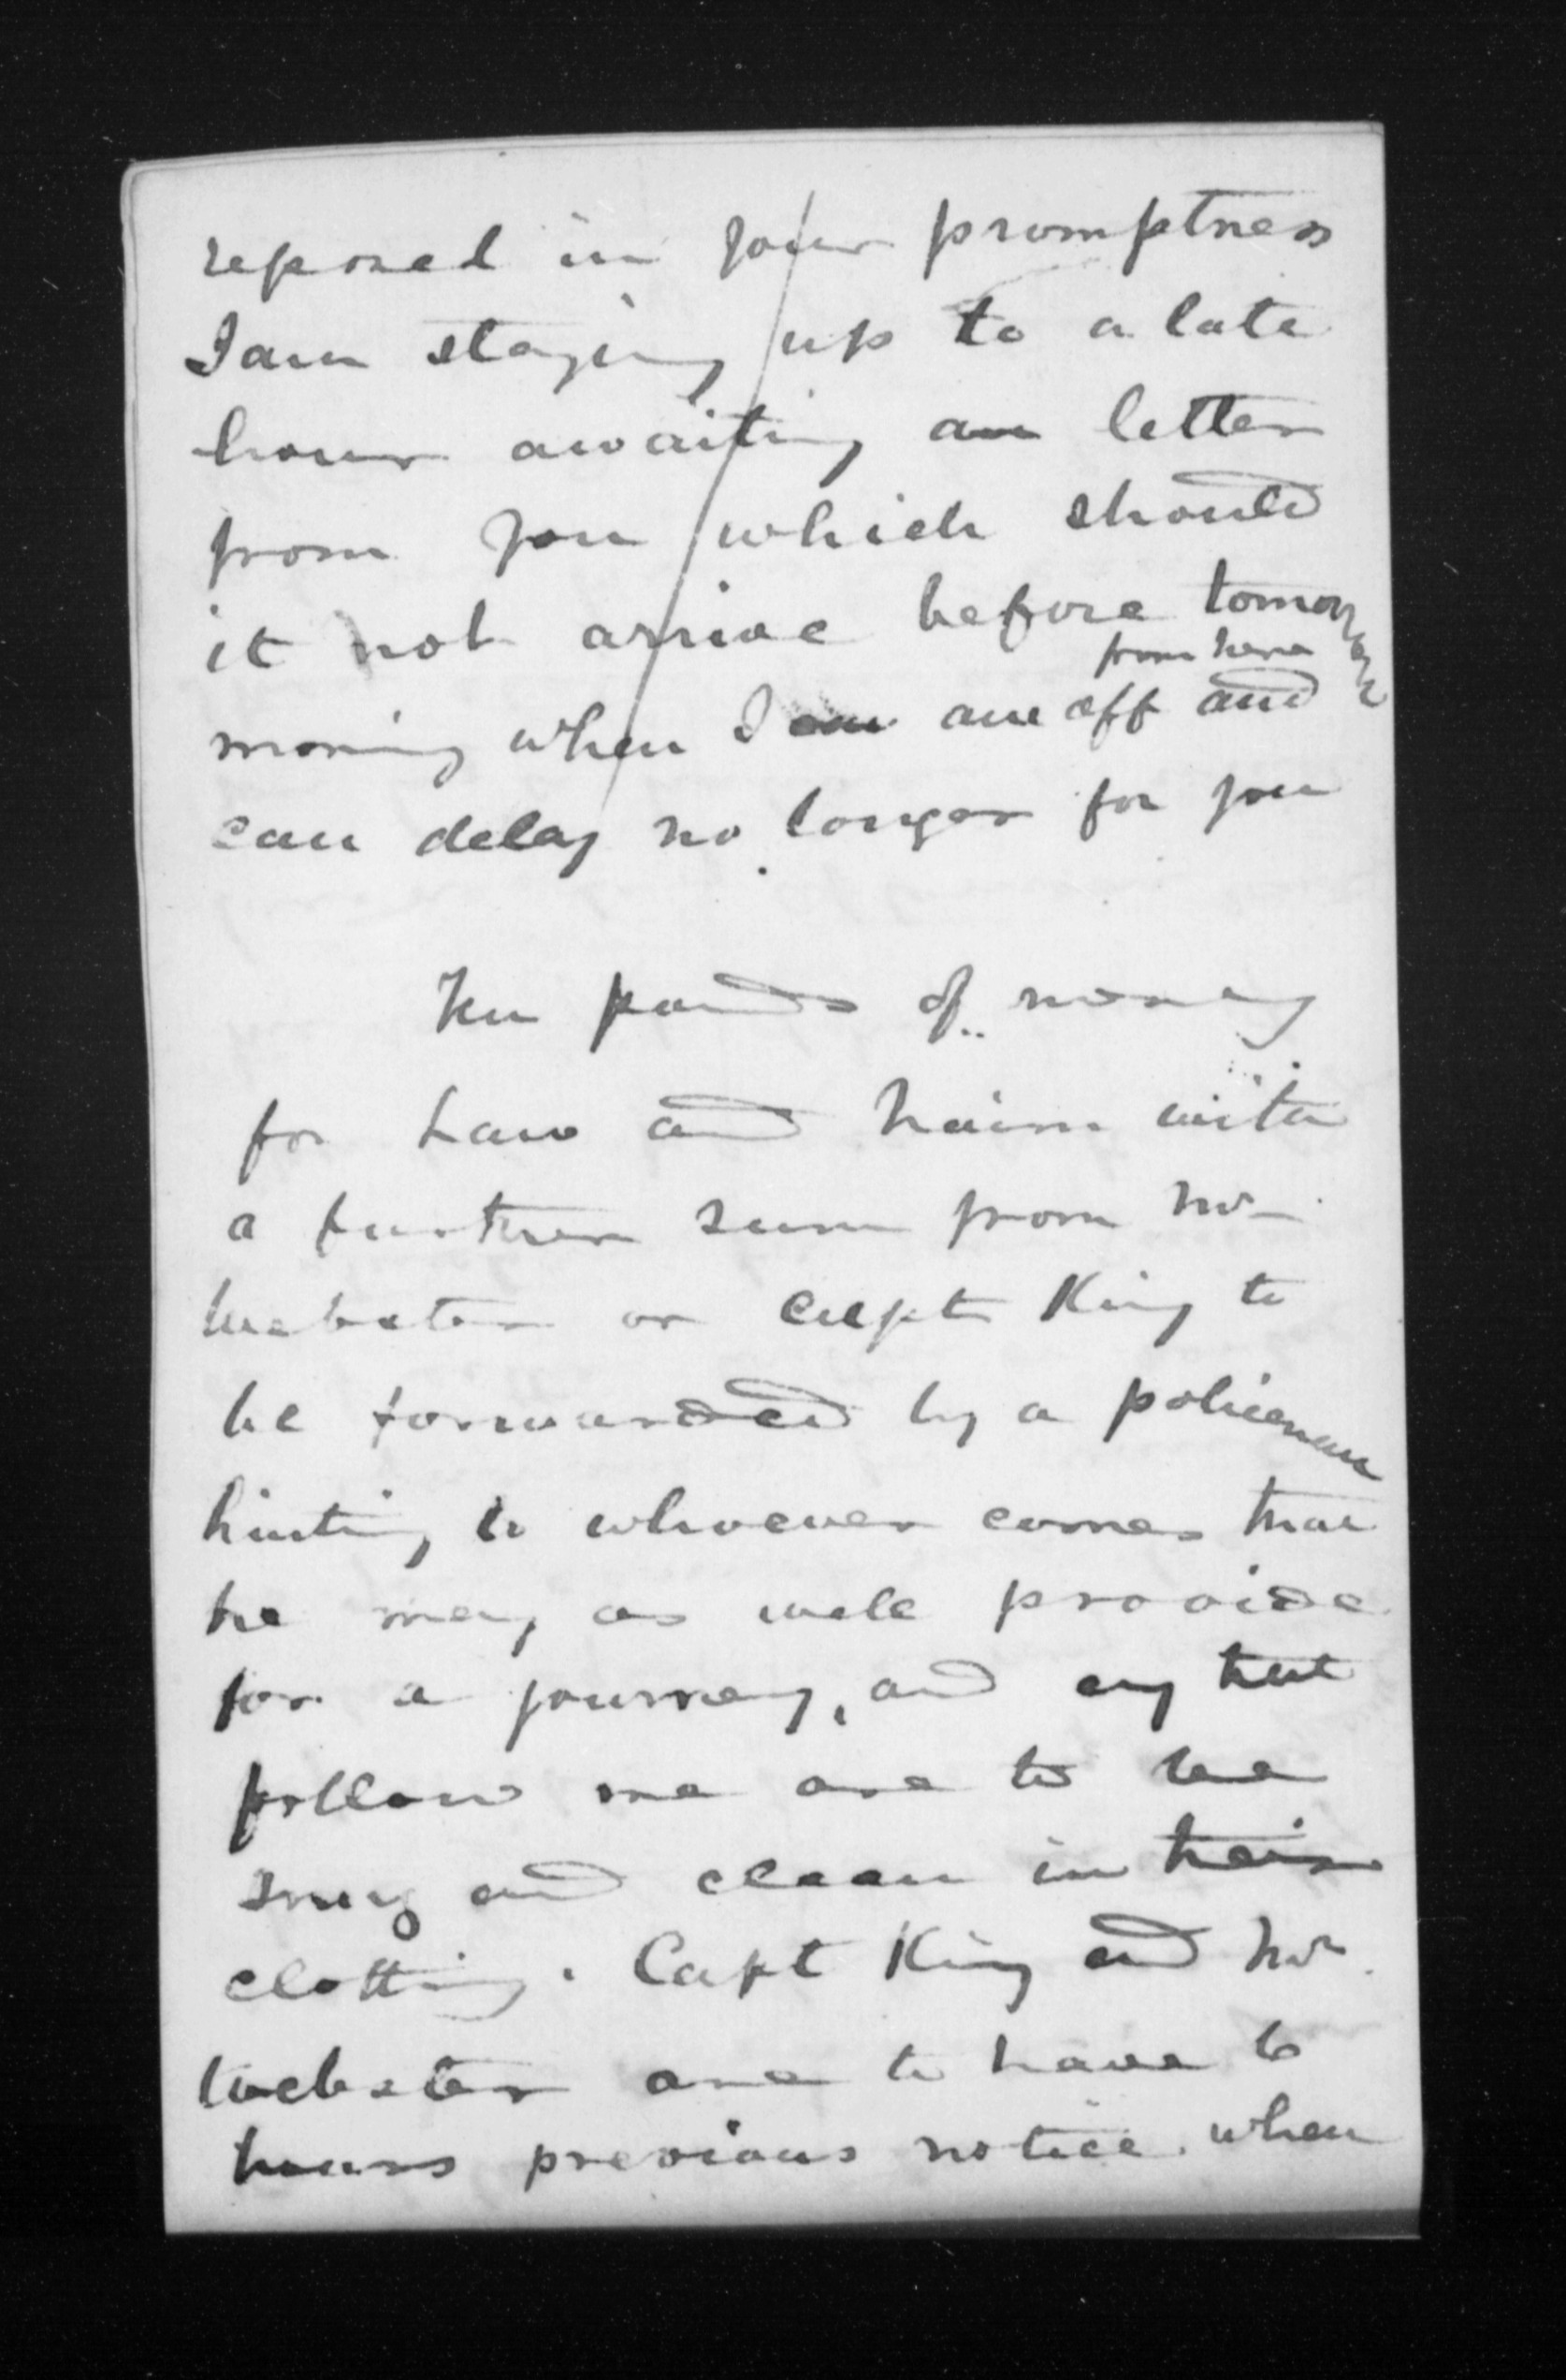 reposed in your promptness
I am staying up to a late
hour awaiting an letter
from you which should
it not arrive before tomorrow
from here
morning when I am off and
can delay no longer for you
Ten pounds of money
for Law and Hairn with
a further sum from Mr
Webster or Capt King to
be forwarded by a policeman
hinting to whoever comes that
he may as well provide
for a journey, and any that
follow me are to be
snug and clean in their
clothing. Capt King and Mr
Webster are to have 6
hours previous notice when